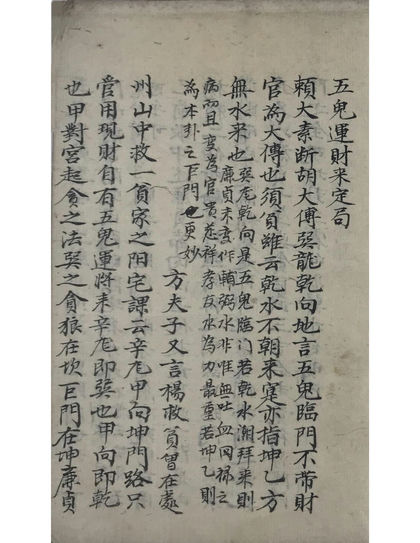 五鬼運財来定局
賴大素断胡大傅巽龍乾向地言五鬼臨門不帶財
官為大傅也須貧雖云乾水不朝来寔亦指坤乙方
無水来也
巽龙乾向是五鬼臨门若乾水潮拜来則
廉貞未变作輔弼水非唯無吐血回禄之
病而且变為官貴慈祥孝友水為力最重若坤乙則
為本卦之巨門也更妙
方夫子又言楊救貧曾在處
州山中救一貧家之阳宅課云辛龙甲向坤門路只
管用現財自有五鬼運将来辛龙即巽也甲向即乾
也甲對宮起貪之法巽之貪狼在坎巨門在坤廉貞